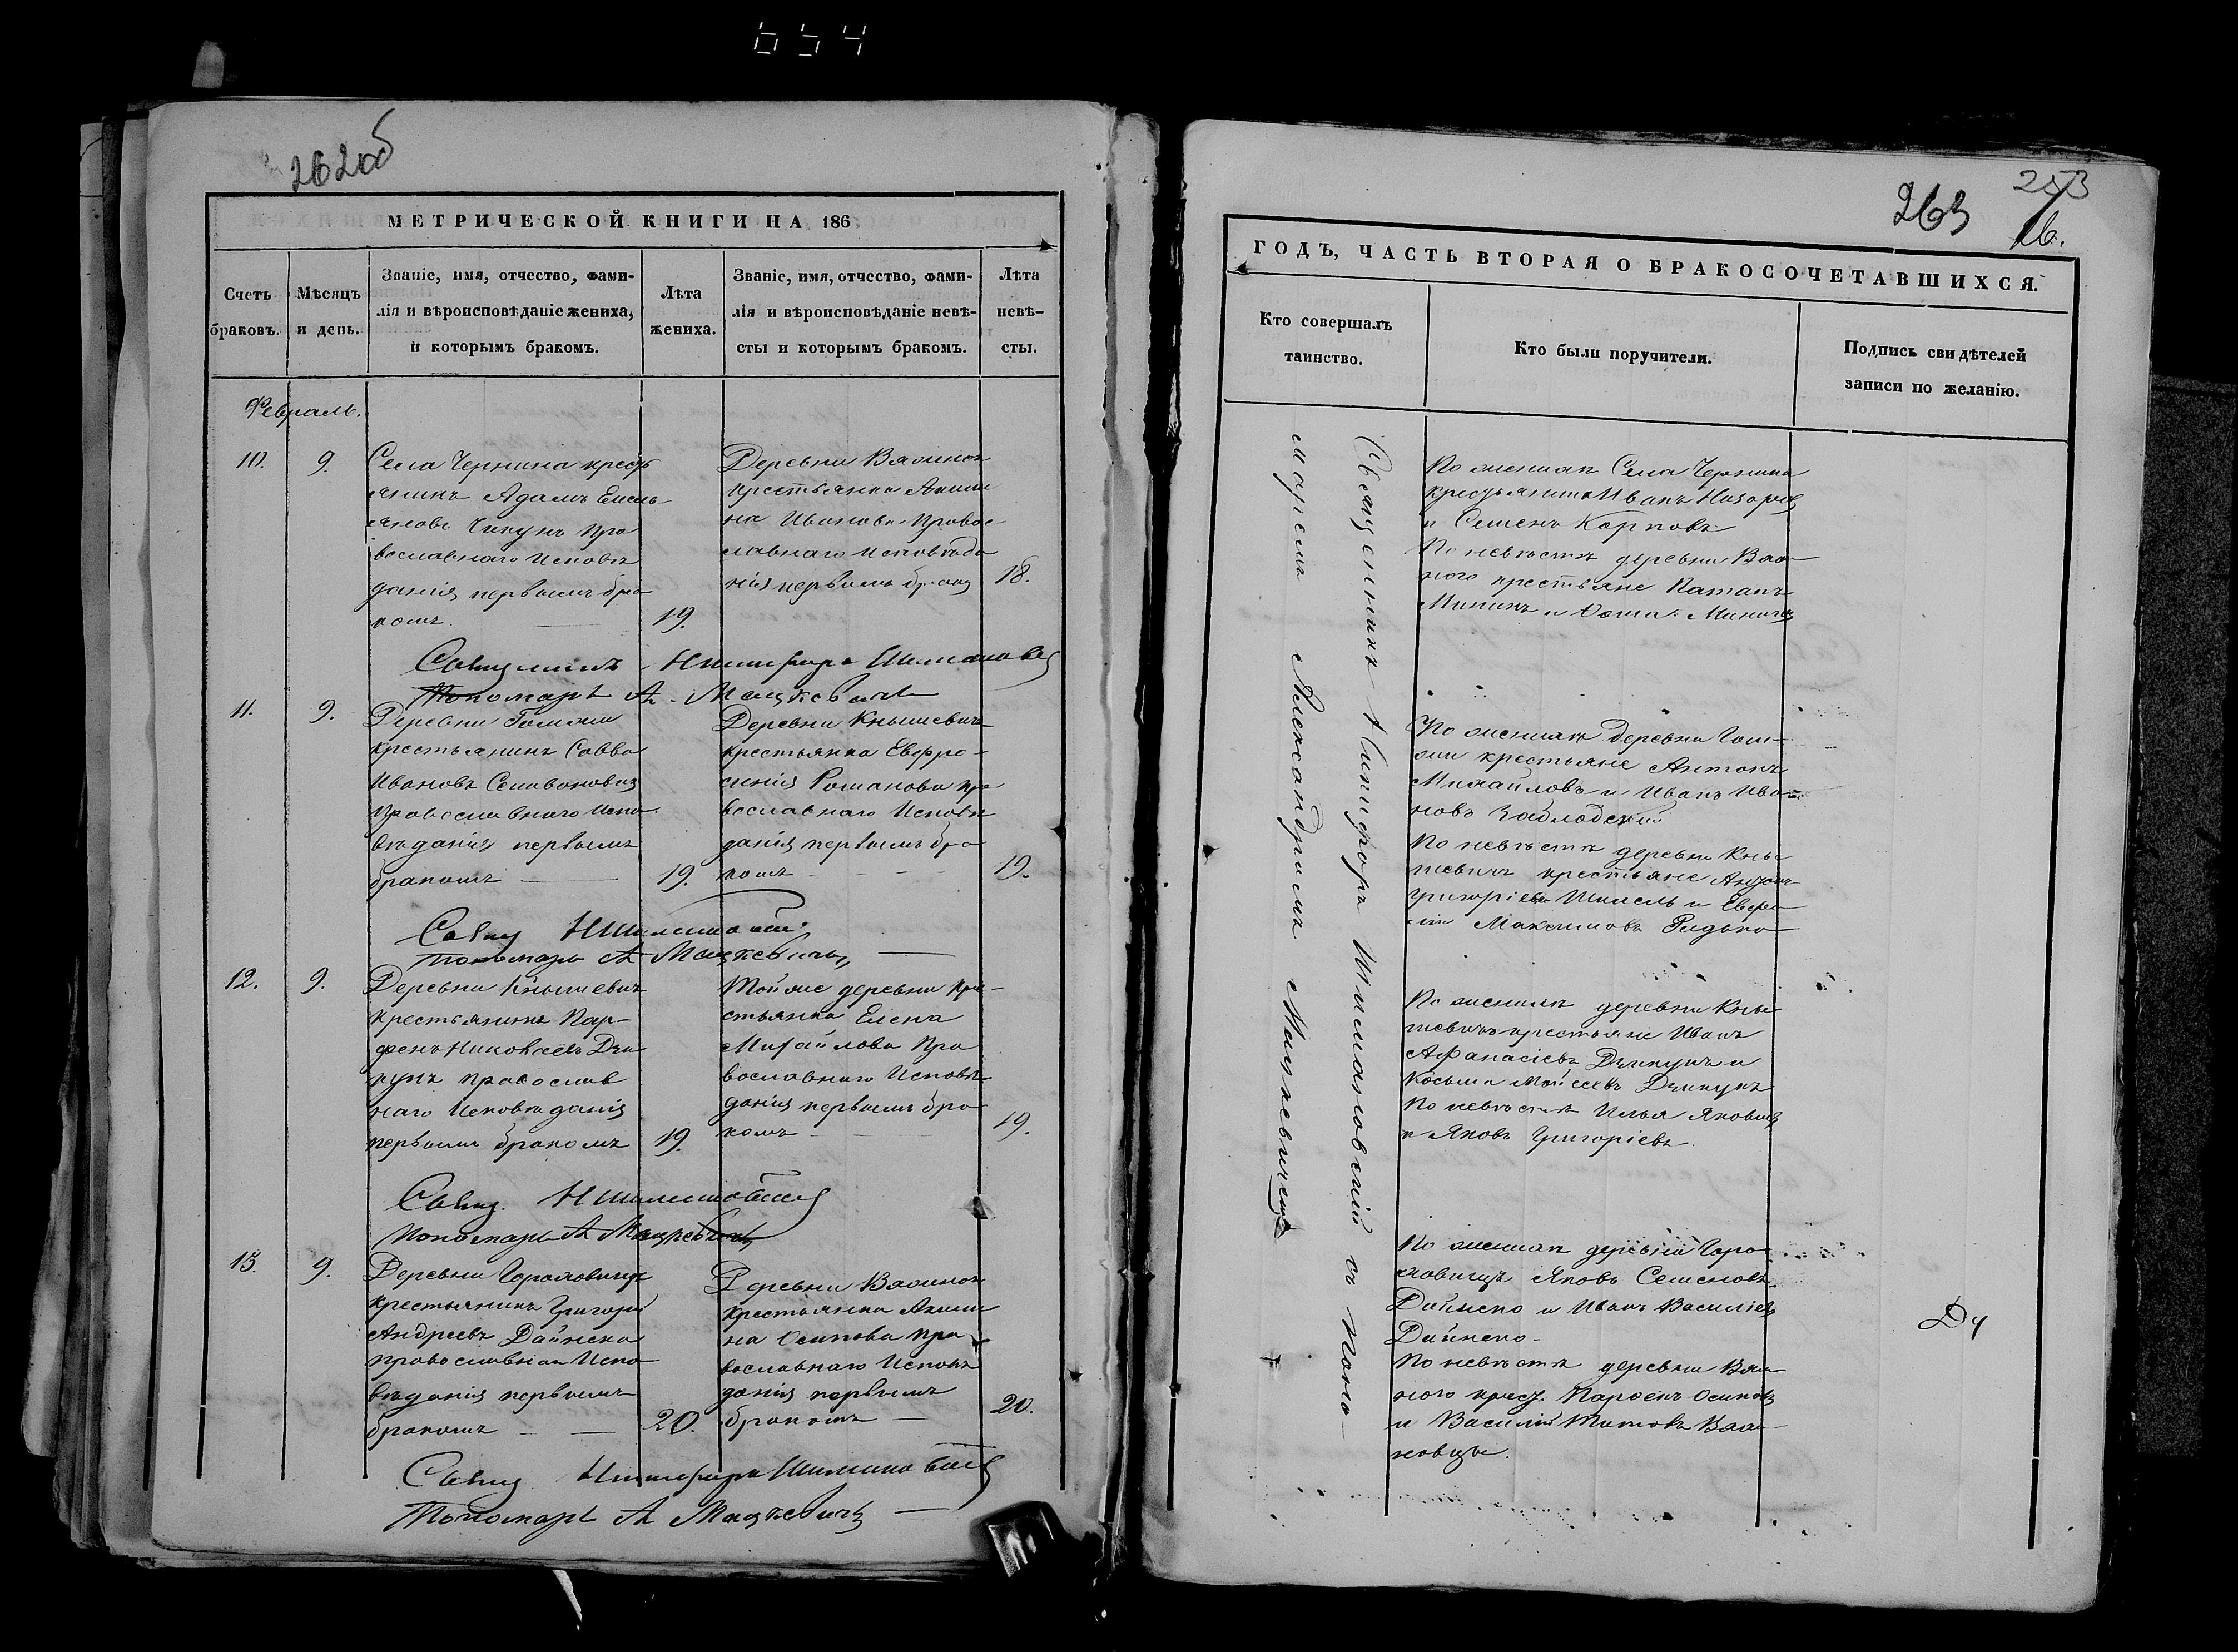 654
262 об
МЕТРИЧЕСКОЙ КНИГИ НА 186
Счетъ браковъ.
Мѣсяцъ и день.
Званіе, имя, отчество, фами-
лія и вѣроисповѣданіе жениха,
и которымъ бракомъ.
Лѣта
жениха.
Званіе, имя, отчество, фами-
лія и вѣроисповѣданіе невѣ-
сты и которымъ бракомъ.
Лѣта
невѣ-
сты.
Февраль.
10.
9.
Села Чернина кресть
янинъ Адамъ Емель
яновъ Чикунъ пра
вославнаго исповѣ
данія первымъ бра
комъ.
19.
Деревни
крестьянка Акили
на Иванова право
славнаго исповѣда
нія первымъ бракомъ
18.
Священникъ Никифоръ Шимановскій
Пономарь А. Мацкевичъ
11.
9.
Деревни
крестьянинъ Савва
Ивановъ
православнаго испо
вѣданія первымъ
бракомъ
19.
Деревни Кнышевичъ
крестьянка Евфро-
синія Романова пра
вославнаго исповѣ
данія первымъ бра
комъ
19.
Свящ Н Шимановскій
Пономарь А Мацкевичъ
12.
9.
Деревни Кнышевичъ
крестьянинъ Пар-
фенъ Николаевъ
православ
наго исповѣданія
первымъ бракомъ
19.
Той же деревни кре-
стьянка Елена
Михайлова пра
вославнаго исповѣ
данія первымъ бра
комъ
19.
Свящ. Н Шимановскій
Пономарь А Мацкевичъ
13.
9.
Деревни
крестьянинъ Григорій
Андреевъ Дайнеко
православнаго испо
вѣданія первымъ
бракомъ
20.
Деревни
крестьянка Акили
на Осипова пра
вославнаго исповѣ
данія первымъ
бракомъ
20.
Свящ Никифоръ Шимановскій
Пономарь А Мацкевичъ
263
253
16.
ГОДЪ, ЧАСТЬ ВТОРАЯ О БРАКОСОЧЕТАВШИХСЯ.
Кто совершалъ
таинство.
Кто были поручители.
Подпись свидѣтелей
записи по желанію.
Священникъ Никифоръ Шимановскій съ поно-
маремъ Александромъ Мацкевичемъ
По женихѣ Села Чернина
крестьяне Иванъ Назаровъ
и Семенъ Карповъ
По невѣстѣ деревни
крестьяне Патапъ
Мининъ и Фома Мининъ
По женихѣ деревни
крестьяне Антонъ
Михайловъ и Иванъ Ива-
новъ Заблодскій
По невѣстѣ деревни Кны
шевичъ крестьяне
Григоріевъ Шмель и
Максимовъ Ридько
По женихѣ деревни Кны
шевичъ крестьяне Иванъ
Афанасіевъ и
Косьма Мойсеевъ
По невѣстѣ Илья Яковлевъ
и Яковъ Григоріевъ.
По женихѣ деревни
Яковъ Семеновъ
Дайнеко и Иванъ Василіевъ
Дайнеко.
По невѣстѣ деревни
крест. Парфенъ Осиповъ
и Василій Титовъ